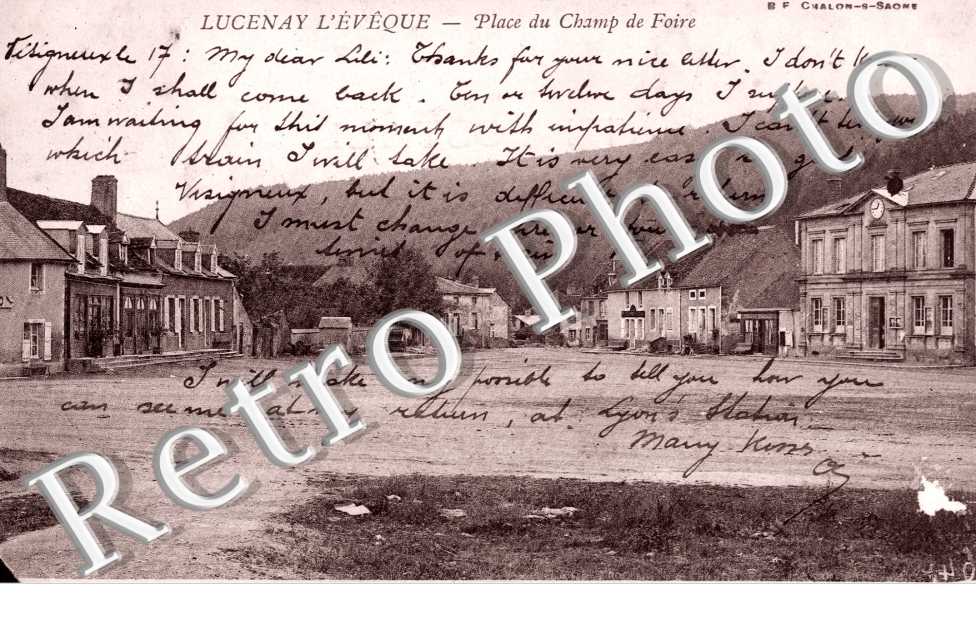 B F CHALON-S-SAONE
LUCENAY L'ÉVÊQUE — Place du Champ de Foire
le 17: My dear Lili: Thanks for your nice letter. I don't
when I shall come back. Ten or twelve days I
I am waiting for this moment with impatience. I can't
which train I will take. It is very
Visigneux, but it is
I must change
of
I will possible to tell you how you
can see me at my return, at Lyon's Station.
Many Kisses
Retro Photo